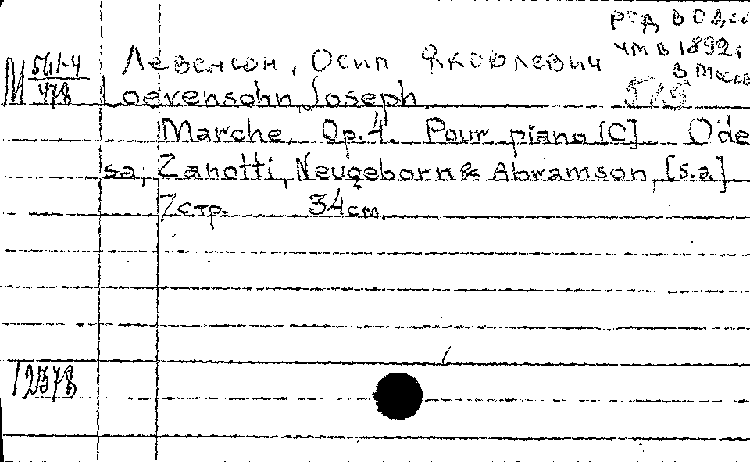 род в Оде
ум в 1892,
в Москв
М 561-4/478
Левенсон, Осип Яковлевич
Loevensohn, Joseph
Marche, Op.4. Pour piano [C] Ode
sa, Zanotti, Neugeborn & Abramson, [s.a]
7 стр. 34 cm.
12578